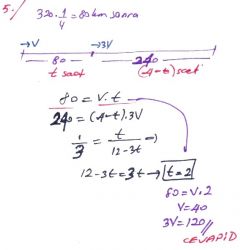 5./
320.1/4 = 80km sonra
→V →3V
80 240
t saat (4-t) saat
80 = V.t
240 = (4-t).3V
1/3 = t/12-3t →
12-3t = 3t → t=2
80 = V.2
V=40
3V=120
CEVAP:D